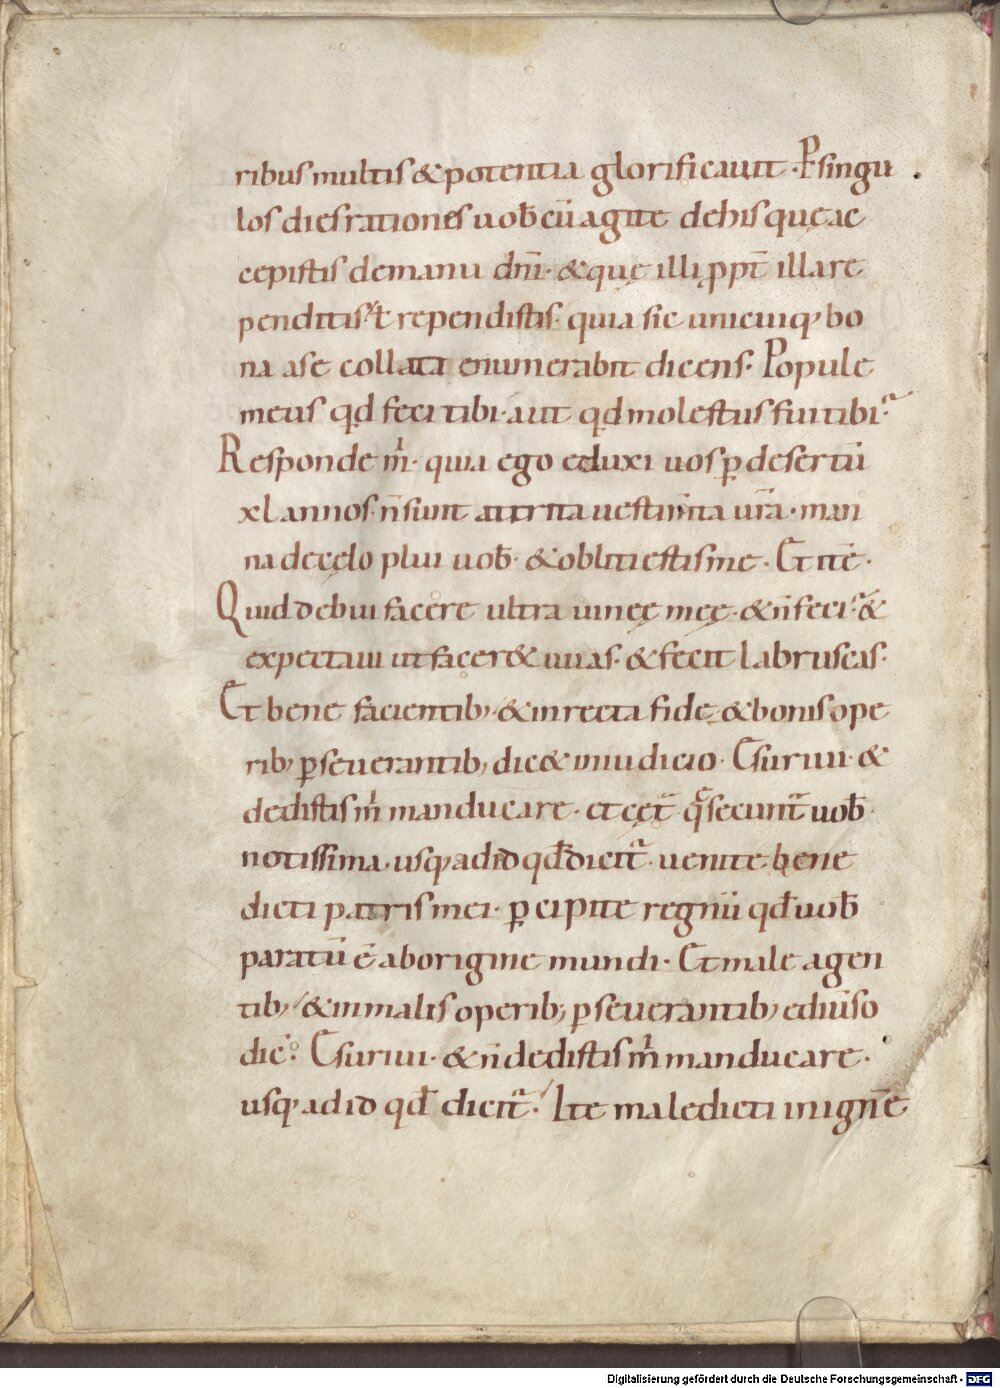 ribus multis & potentia glorificauit · P̱ singu
los dies rationes uob̄ cū agite de his quę ac
cepistis de manu dn̄i · & quę illi ꝓpt̄ illa re
penditis ɫ rependistis · quia sic unicuiq; bo
na a se collata enumerabit dicens · Popule
meus qd feci tibi · aut qd molestus fui tibi ?
Responde m̄ · quia ego eduxi uos ꝑ desertū
xl annos · n̄ sunt attrita uestim̄ta ur̄a · man
na de cęlo plui uob̄ · & obliti estis me · Et itē ·
Quid debui facere ultra uineę meę · & n̄ feci ? &
expectaui ut facer& uuas · & fecit labruscas ·
Et bene facientib; · & in recta fide & bonis ope
rib; ꝑseuerantib; dic& in iudicio · Esuriui · &
dedistis m̄ manducare · et cęt̄ q̄ secunt̄ uob̄
notissima · usq; ad id qd̄ dicit̄ · uenite bene
dicti patris mei · ꝑcipite regnū qd̄ uob̄
paratū ē ab origine mundi · Et male agen
tib; · & in malis operib; ꝑseuerantib; ediūso
dic̄ : Esuriui · & n̄ dedistis m̄ manducare ·
usq; ad id qd̄ dicit̄ · Ite maledicti in ignē
Digitalisierung gefördert durch die Deutsche Forschungsgemeinschaft - DFG